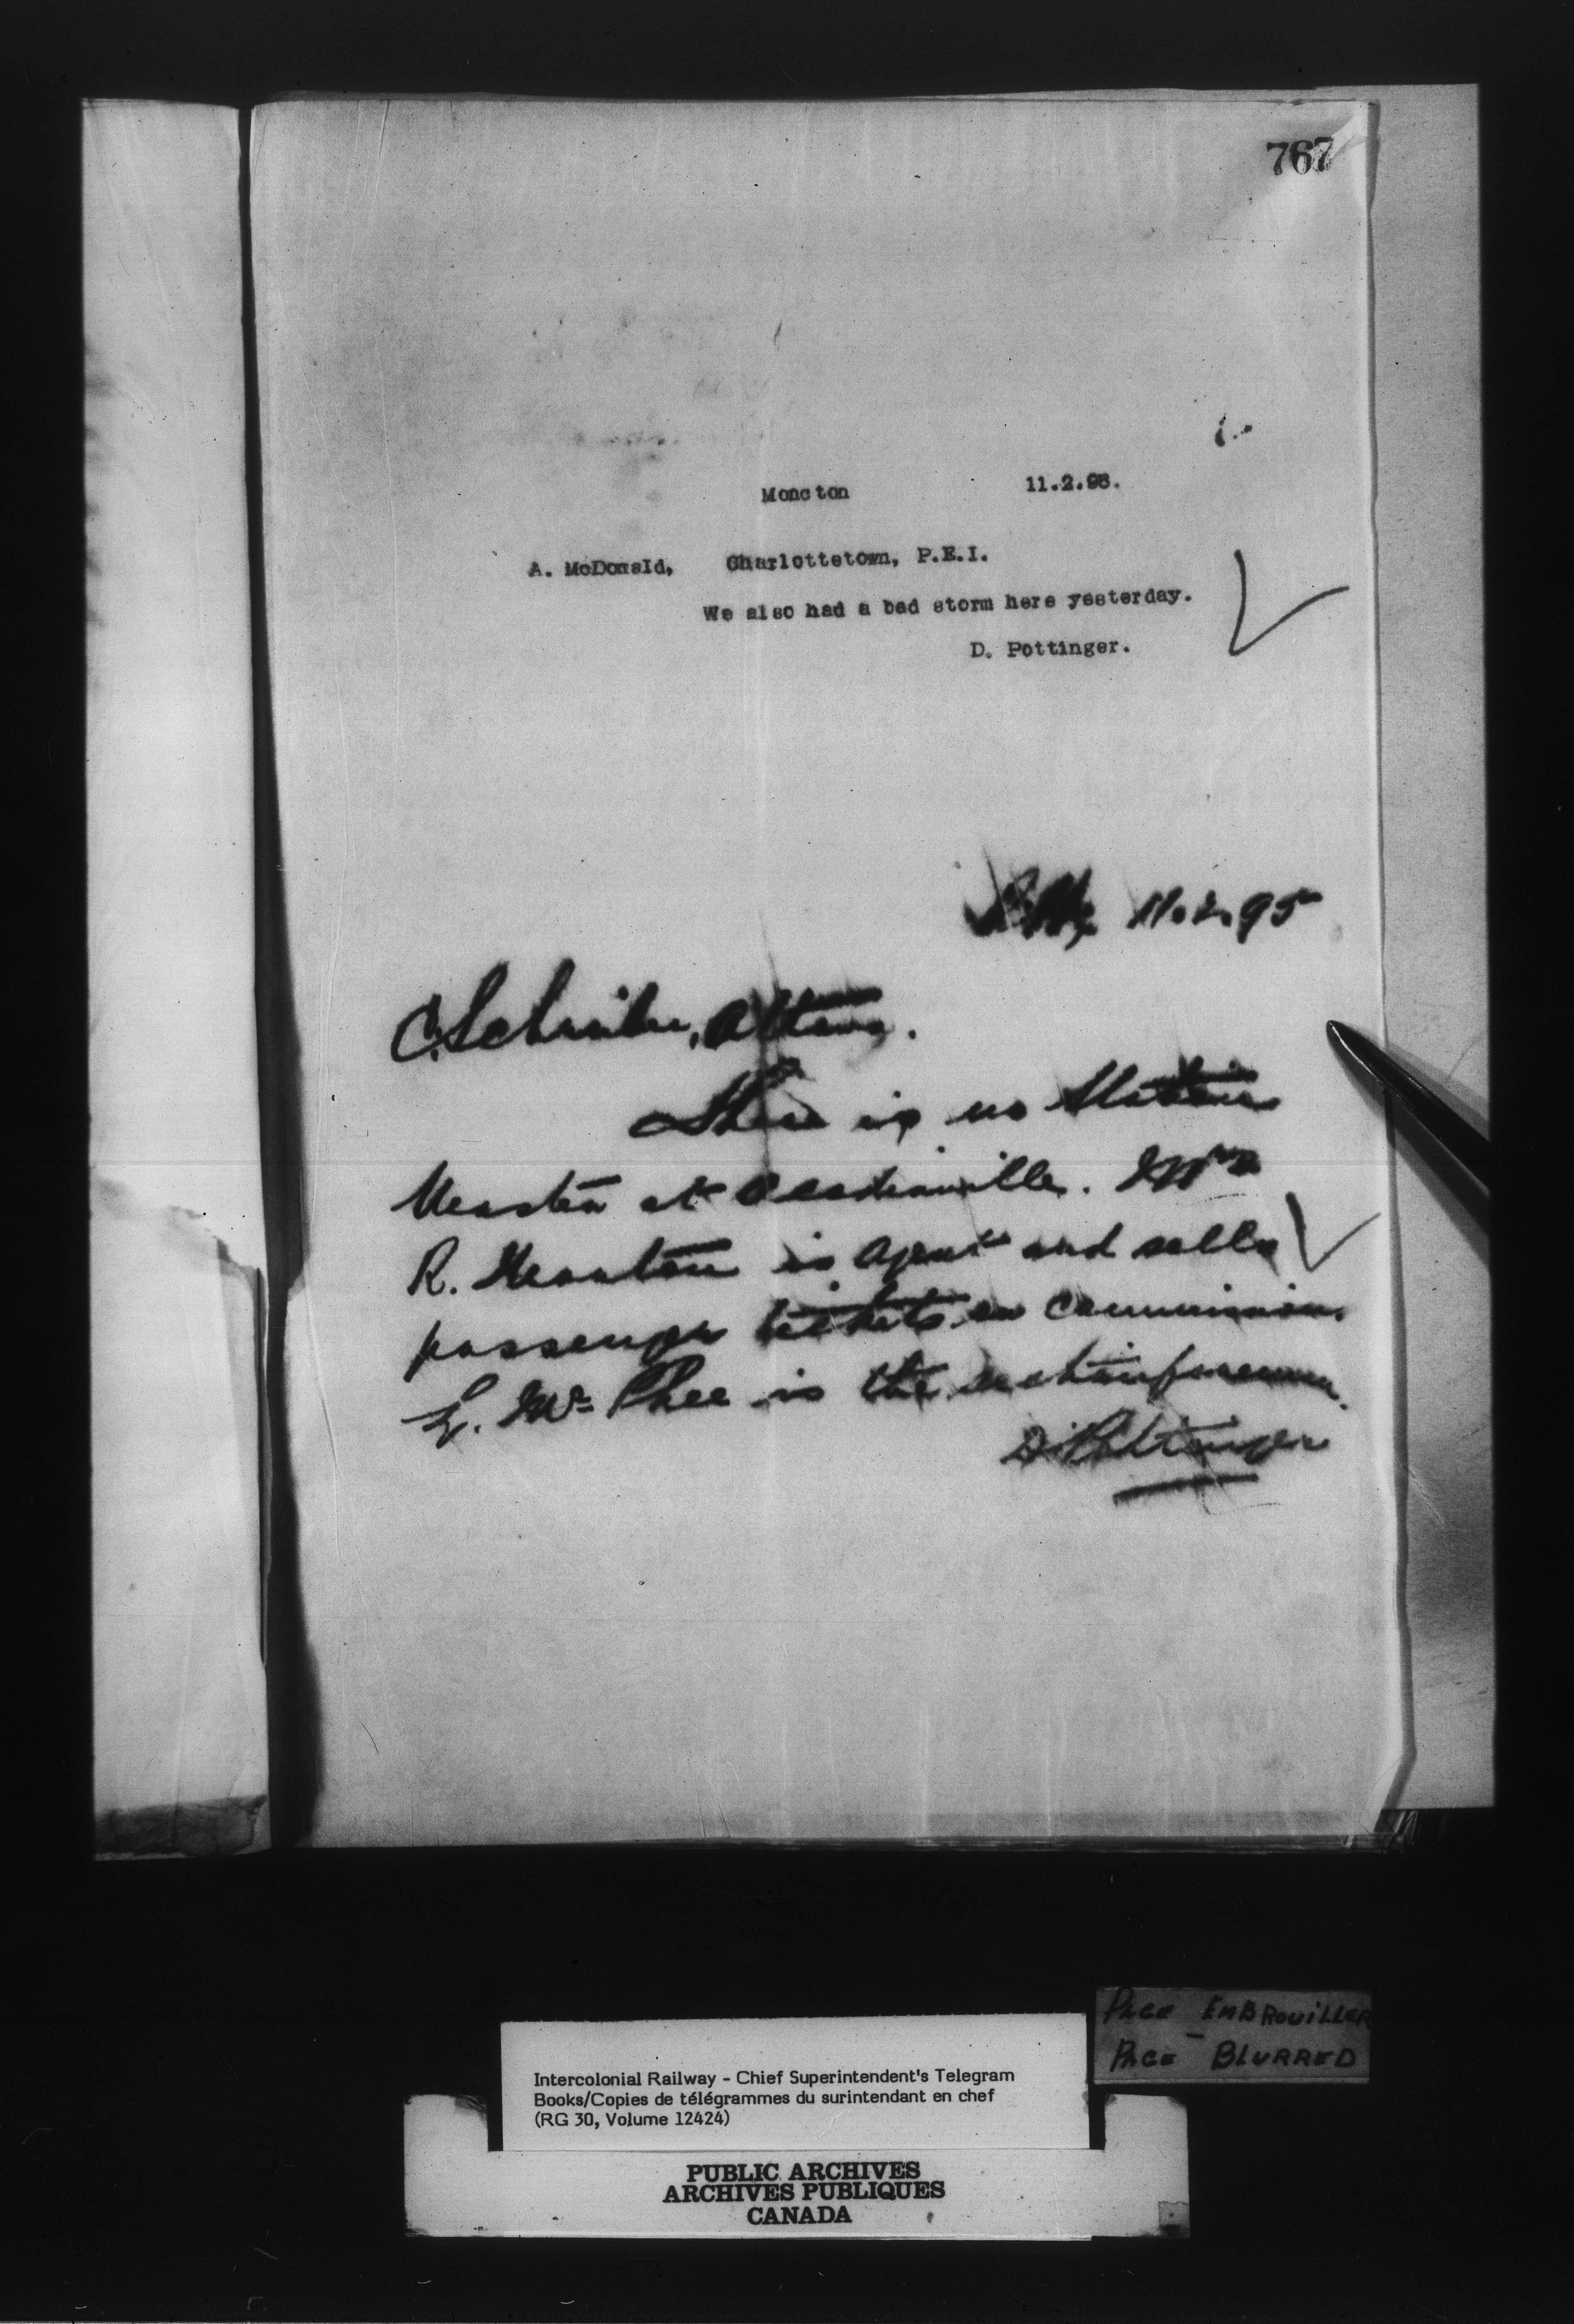 767
Moncton 11.2.95.
A. McDonald, Charlottetown, P.E.I.
We also had a bad storm here yesterday.
D. Pottinger.
11.2.95
C. Schreiber, Ottawa.
There is no Station
Master at
R. is Agent and sells
passenger tickets on commission.
Mc Phee is the section foreman.
D. Pottinger
PAGE EMBROUILLER
PAGE - BLURRED
Intercolonial Railway - Chief Superintendent's Telegram
Books/Copies de télégrammes du surintendant en chef
(RG 30, Volume 12424)
PUBLIC ARCHIVES
ARCHIVES PUBLIQUES
CANADA